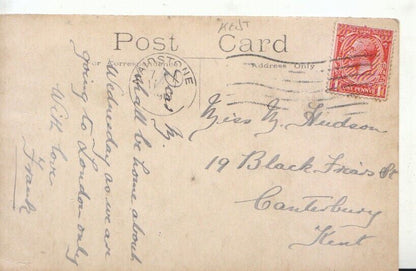 KENT
Post Card
For Correspondence
Address Only
MAIDSTONE
ONE PENNY
Dear M,
shall be home about
Wednesday as we are
going to London only
With love
Frank
Miss M. Hudson
19 Black Friars St
Canterbury
Kent